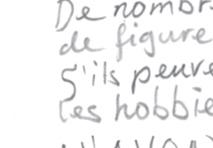 De nombr
de figure
S'ils peuve
les hobbie